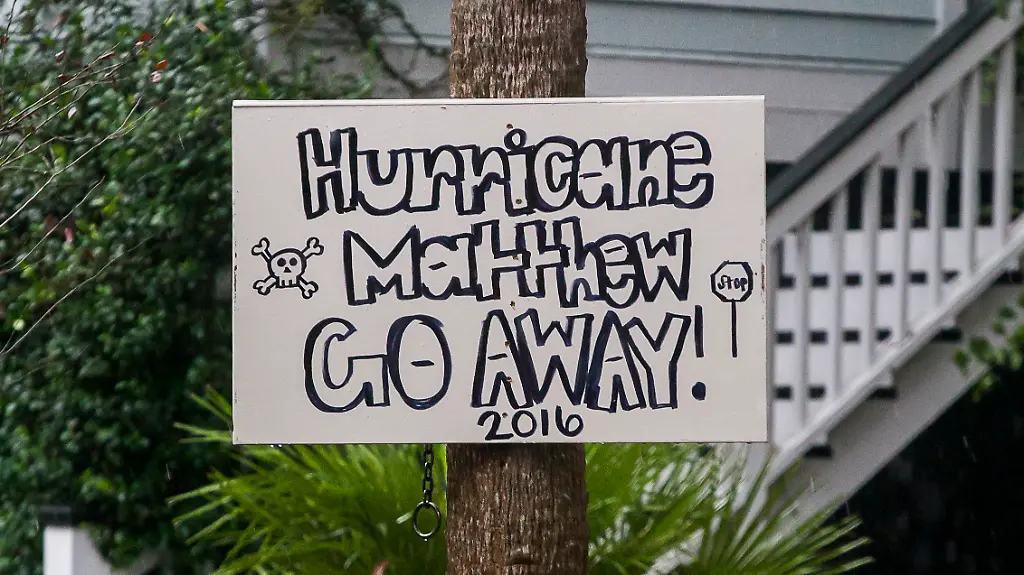 Hurricane
Matthew
Stop
GO AWAY!
2016